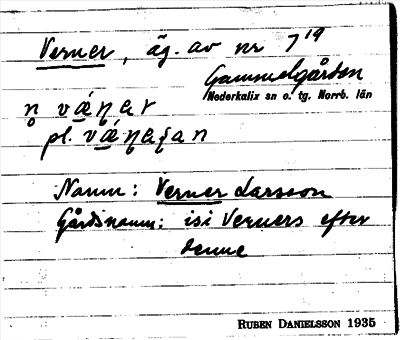 Verner, äg. av nr 7¹⁹
Gammelgården
Nederkalix sn o. tg. Norrb. län
pl.
Namn: Verner Larsson
Gårdsnamn: isi Verners efter
denne
RUBEN DANIELSSON 1935